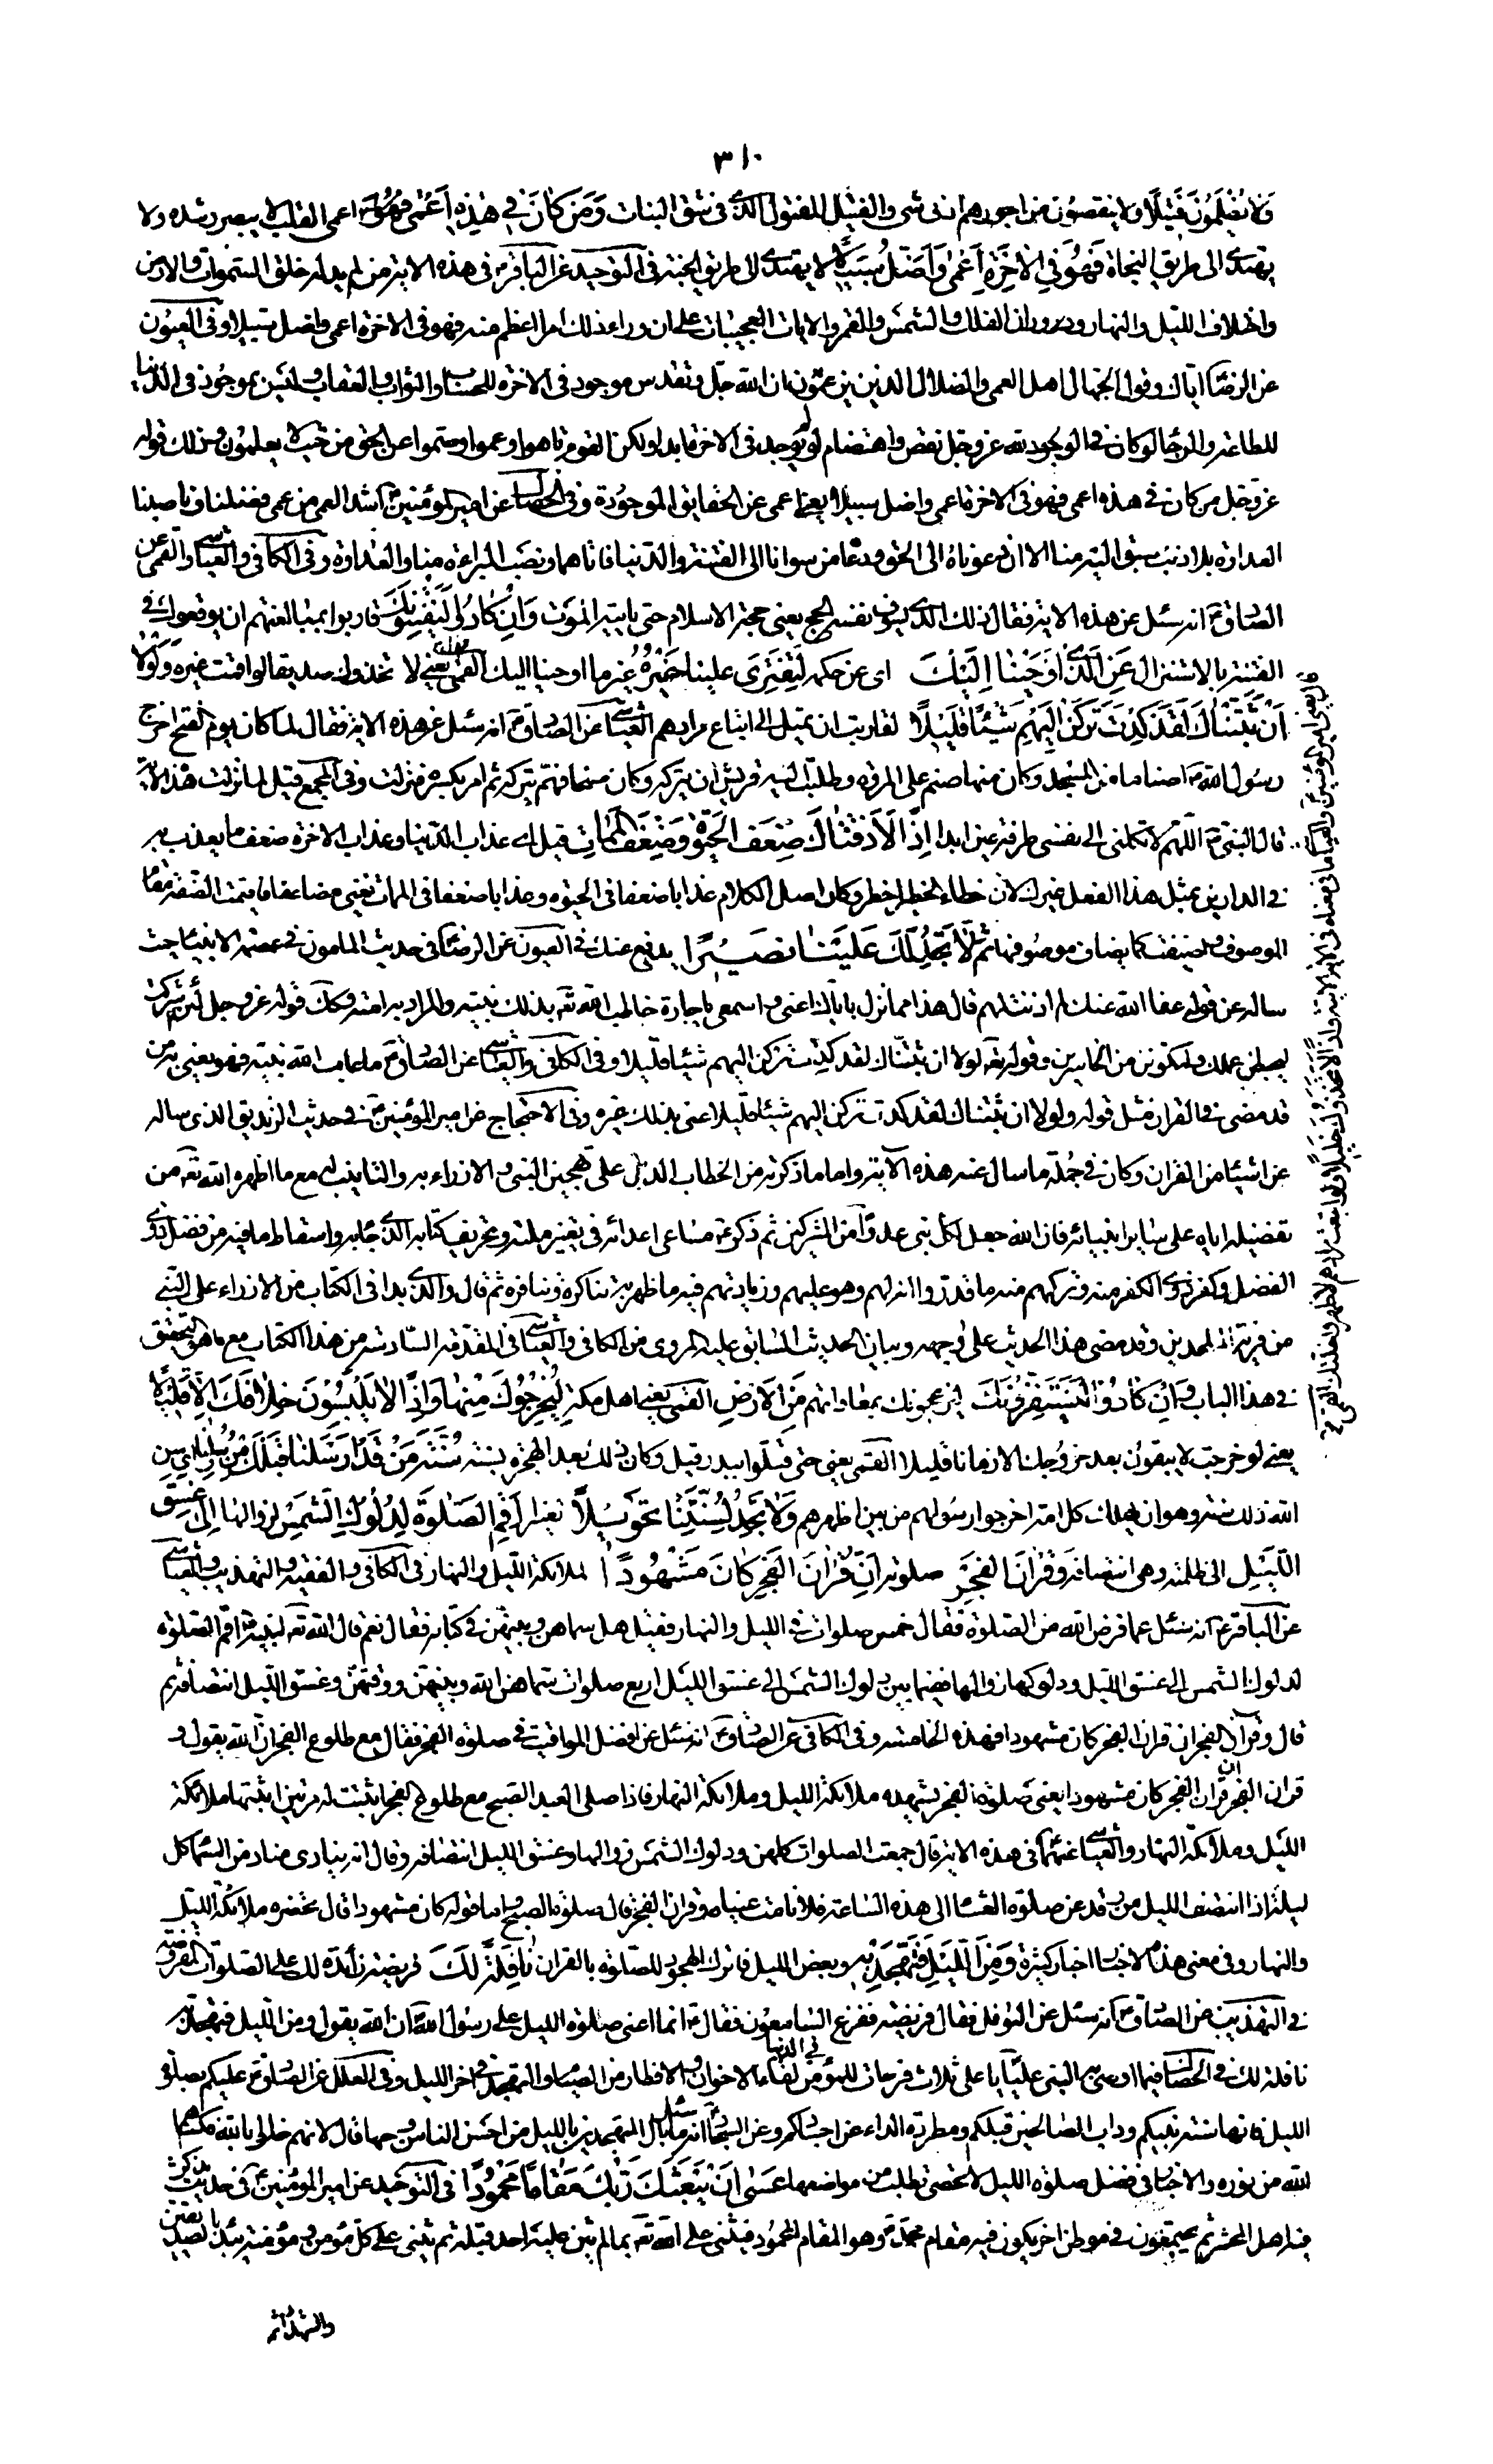 ٣١٠
وَلا يُظْلَمُونَ فَتِيلًا ولا ينقصون من اجورهم ادنى شى والفتيل المفتول الذى فى شق النبات وَمَنْ كانَ فِي هٰذِهِ اَعْمٰى فَهُوَ اعمى القلب لا يبصر رشده ولا
يهتدى الى طريق النجاة فَهُوَ فِي الْاٰخِرَةِ اَعْمٰى وَاَضَلُّ سَبِيلًا لا يهتدى الى طريق الجنة فى التوحيد عن الباقر فى هذه الاية من لم يدله خلق السموات والارض
واختلاف الليل والنهار ودوران الفلك والشمس والقمر والايات العجيبات على ان وراء ذلك امرا اعظم منه فهو فى الاخرة اعمى واضل سبيلا وفى العيون
عن الرضا اياك وقول الجهال اهل العمى والضلال الذين يزعمون ان الله جل وتقدس موجود فى الاخرة للحساب والثواب والعقاب وليس بموجود فى الدنيا
للطاعة والرجا ولو كان فى الوجود لله عز وجل نقص واهتضام لم يوجد فى الاخرة ابدا ولكن القوم تاهوا وعموا وصموا عن الحق من حيث لا يعلمون وذلك قوله
عز وجل من كان فى هذه اعمى فهو فى الاخرة اعمى واضل سبيلا يعنى اعمى عن الحقايق الموجودة وفى الخصال عن امير المؤمنين اشد العمى من عمى فضلنا وناصبنا
العداوة بلا ذنب سبق اليه منا الا ان دعوناه الى الحق ودعا من سوانا الى الفتنة والدنيا فاتاهما ونصب البراءة منا والعداوة وفى الكافى والعياشى والقمى عن
الصادق انه سئل عن هذه الاية فقال ذلك الذى يسوف نفسه الحج يعنى حجة الاسلام حتى ياتيه الموت وَاِنْ كادُوا لَيَفْتِنُونَكَ قاربوا بمبالغتهم ان يوقعوك فى
الفتنة بالاستنزال عَنِ الَّذِي اَوْحَيْنا اِلَيْكَ اى عن حكمه لِتَفْتَرِيَ عَلَيْنا غَيْرَهُ غير ما اوحينا اليك القمى يعنى لا تخذوك صديقا لو اقمت غيره وَلَوْلا
اَنْ ثَبَّتْناكَ لَقَدْ كِدْتَ تَرْكَنُ اِلَيْهِمْ شَيْئًا قَلِيلًا لقاربت ان تميل الى اتباع مرادهم العياشى عن الصادق انه سئل عن هذه الاية فقال لما كان يوم الفتح اخرج
رسول الله اصناما من المسجد وكان منها صنم على المروة وطلبت اليه قريش ان يتركه وكان مستحيا فهم بتركه ثم امر بكسره فنزلت وفى المجمع قيل لما نزلت هذه الاية
قال النبى اللهم لا تكلنى الى نفسى طرفة عين ابدا اِذًا لَاَذَقْناكَ ضِعْفَ الْحَيٰوةِ وَضِعْفَ الْمَماتِ قيل اى عذاب الدنيا وعذاب الاخرة ضعف ما يعذب به
فى الدارين بمثل هذا الفعل غيرك لان خطاء الخطير اخطر وكان اصل الكلام عذابا ضعفا فى الحيوة وعذابا ضعفا فى الممات يعنى مضاعفا فاقيمت الصفة مقام
الموصوف واضيفت كما يضاف موصوفها ثُمَّ لا تَجِدُ لَكَ عَلَيْنا نَصِيرًا يدفع عنك فى العيون عن الرضا فى حديث المامون فى عصمة الانبياء حيث
ساله عن قوله عفا الله عنك لم اذنت لهم قال هذا مما نزل باياك اعنى واسمعى يا جارة خاطب الله تع بذلك نبيه والمراد به امته وكك قوله عز وجل لئن اشركت
ليحبطن عملك ولتكونن من الخاسرين وقوله تع لولا ان ثبتناك لقد كدت تركن اليهم شيئا قليلا وفى الكافى والعياشى عن الصادق ما عاتب الله نبيه فهو يعنى به من
قد مضى فى القران مثل قوله ولولا ان ثبتناك لقد كدت تركن اليهم شيئا قليلا عنى بذلك غيره وفى الاحتجاج عن امير المؤمنين فى حديث الزنديق الذى ساله
عن اشيئا من القران وكان فى جملة ما سال عنه هذه الاية واما ما ذكرته من الخطاب الدال على تهجين النبى والازراء به والتانيب له مع ما اظهره الله تع من
تفضيله اياه على ساير انبيائه فان الله جعل لكل نبى عدوا من المشركين ثم ذكر مساعى اعدائه فى تغيير ملته وتحريف كتابه الذى جاء به واسقاط ما فيه من فضل ذوى
الفضل وكفر ذوى الكفر منه وتركهم منه ما قدروا انه لهم وهو عليهم وزيادتهم فيه ما ظهر تناكره وتنافره ثم قال والذى بدا فى الكتاب من الازراء على النبى
من فرية الملحدين وقد مضى هذا الحديث على وجهه وبيان الحديث السابق عليه المروى من الكافى والعياشى فى المقدمة السادسة من هذا الكتاب مع ما هو التحقيق
فى هذا الباب وَاِنْ كادُوا لَيَسْتَفِزُّونَكَ ليزعجونك بمعاداتهم مِنَ الْاَرْضِ القمى يعنى اهل مكة لِيُخْرِجُوكَ مِنْها وَاِذًا لا يَلْبَثُونَ خِلافَكَ اِلَّا قَلِيلًا
يعنى لو خرجت لا يبقون بعد خروجك الا زمانا قليلا القمى يعنى حتى قتلوا ببدر وقيل وكان ذلك بعد الهجرة بسنة سُنَّةَ مَنْ قَدْ اَرْسَلْنا قَبْلَكَ مِنْ رُسُلِنا اى سن
الله ذلك سنة وهو ان يهلك كل امة اخرجوا رسولهم من بين اظهرهم وَلا تَجِدُ لِسُنَّتِنا تَحْوِيلًا تغييرا اَقِمِ الصَّلٰوةَ لِدُلُوكِ الشَّمْسِ لزوالها اِلٰى غَسَقِ
اللَّيْلِ الى ظلمته وهى انتصافه وَقُرْاٰنَ الْفَجْرِ صلوته اِنَّ قُرْاٰنَ الْفَجْرِ كانَ مَشْهُودًا لملائكة الليل والنهار فى الكافى والفقيه والتهذيب والعياشى
عن الباقر انه سئل عما فرض الله من الصلوة فقال خمس صلوات فى الليل والنهار فقيل هل سماهن وبينهن فى كتابه فقال نعم قال الله تع لنبيه اقم الصلوة
لدلوك الشمس الى غسق الليل ودلوكها زوالها ففيما بين دلوك الشمس الى غسق الليل اربع صلوات سماهن الله وبينهن ووقتهن وغسق الليل انتصافه ثم
قال وقران الفجر ان قران الفجر كان مشهودا فهذه الخامسة وفى الكافى عن الصادق انه سئل عن افضل المواقيت فى صلوة الفجر فقال مع طلوع الفجر ان الله يقول و
قران الفجر ان قران الفجر كان مشهودا يعنى صلوة الفجر يشهده ملائكة الليل وملائكة النهار فاذا صلى العبد الصبح مع طلوع الفجر اثبتت له مرتين اثبتها ملائكة
الليل وملائكة النهار والعياشى عنهما فى هذه الاية قال جمعت الصلوات كلهن ودلوك الشمس زوالها وغسق الليل انتصافه وقال انه ينادى مناد من السماء كل
ليلة اذا انتصف الليل من رقد عن صلوة العشاء الى هذه الساعة فلا نامت عيناه وقران الفجر قال صلوة الصبح واما قوله كان مشهودا قال تحضره ملائكة الليل
والنهار وفى معنى هذه الاخبار اخبار كثيرة وَمِنَ اللَّيْلِ فَتَهَجَّدْ بِهِ وبعض الليل فاترك الهجود للصلوة بالقران نافِلَةً لَكَ فريضة زائدة لك على الصلوات المفروضة
فى التهذيب عن الصادق انه سئل عن النوافل فقال فريضة ففزع السامعون فقال انما اعنى صلوة الليل على رسول الله ان الله يقول ومن الليل فتهجد به
نافلة لك وفى الخصال فيما اوصى به النبى عليا يا على ثلاث فرحات للمؤمن فى الدنيا لقاء الاخوان والافطار من الصيام والتهجد من اخر الليل وفى العلل عن الصادق عليكم بصلوة
الليل فانها سنة نبيكم وداب الصالحين قبلكم ومطردة الداء عن اجسادكم وعن السجاد انه سئل ما بال المتهجدين بالليل من احسن الناس وجها قال لانهم خلوا بالله فكساهم
الله من نوره والاخبار فى فضل صلوة الليل لا تحصى تطلب من مواضعها عَسٰى اَنْ يَبْعَثَكَ رَبُّكَ مَقامًا مَحْمُودًا فى التوحيد عن امير المؤمنين فى حديث يذكر
فيه اهل المحشر ثم يجتمعون فى موطن اخر يكون فيه مقام محمد وهو المقام المحمود فيثنى على الله تع بما لم يثن عليه احد قبله ثم يثنى على كل مؤمن ومؤمنة يبدأ بالصديقين
والشهداء ثم